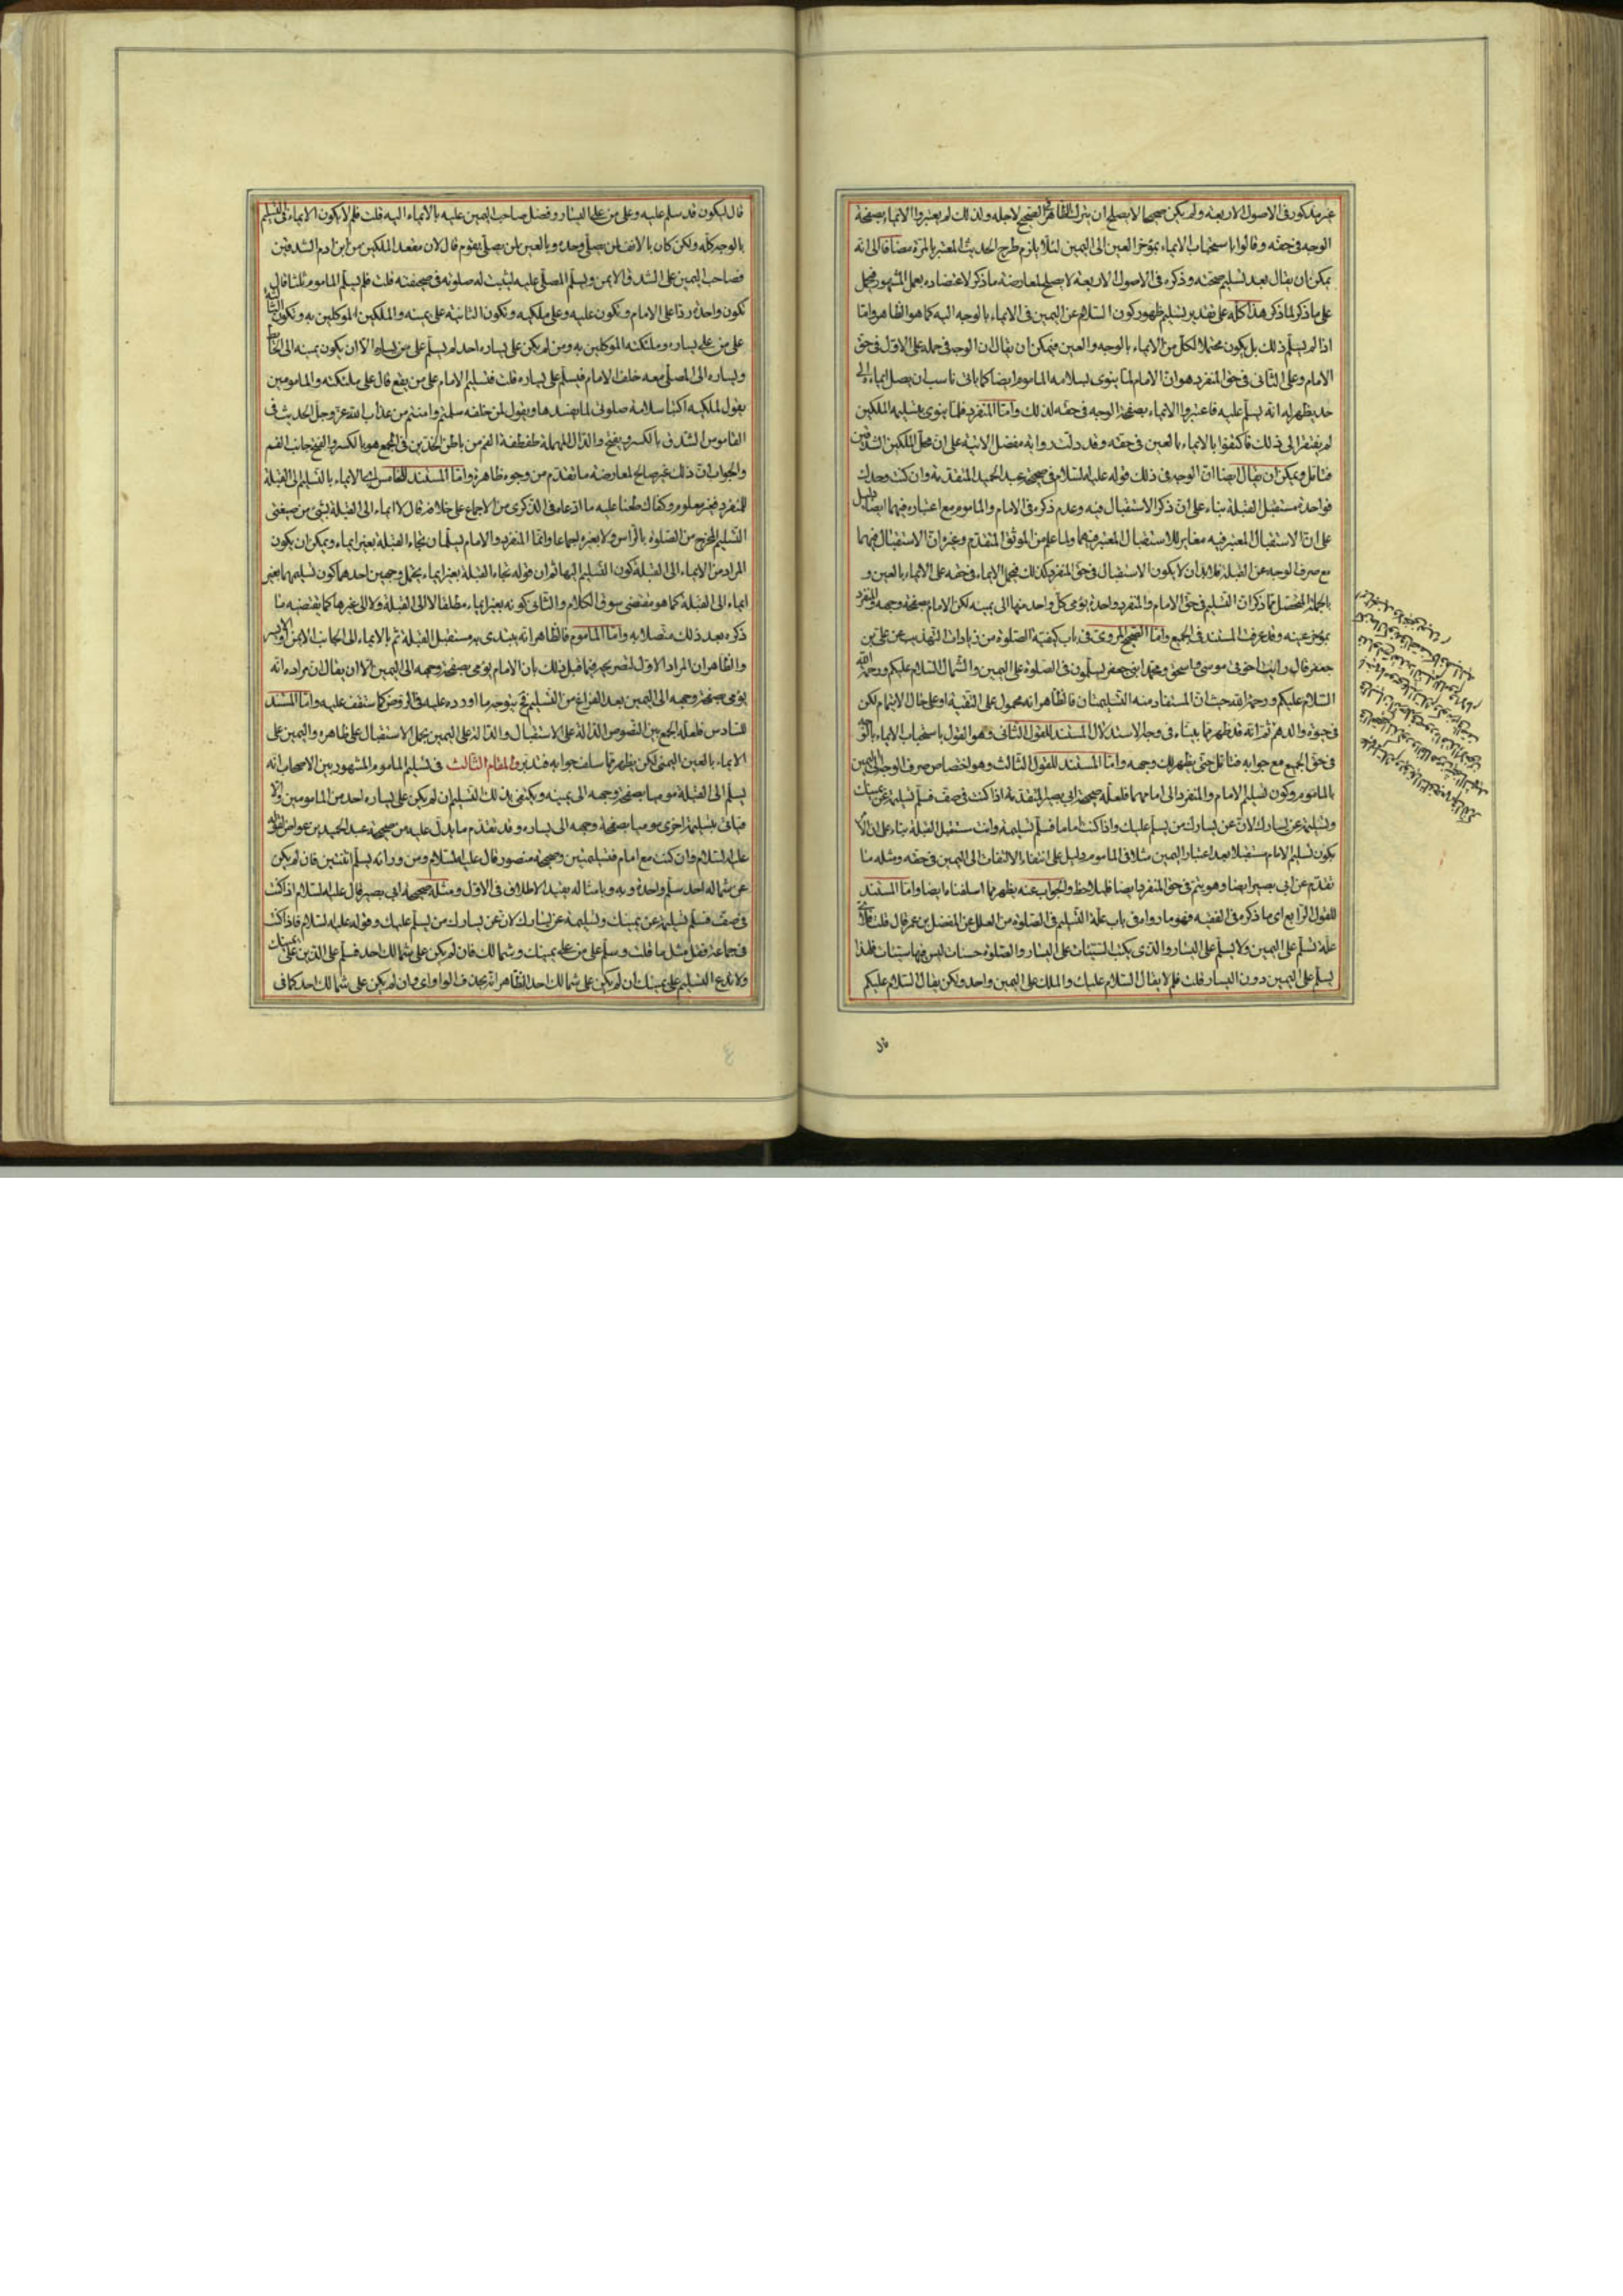 غير مذكور في الاصول الاربعة ولم يكن صحيحا لا يصلح ان يترك الظاهر الصحيح لاجله ولذلك لم يعتبروا الايماء بصفحة
الوجه في حقه وقالوا باستحباب الايماء بمؤخر العين الى اليمين لئلا يلزم طرح الحديث المعتبر بالمرة مضافا الى انه
يمكن ان يقال بعد تسليم صحته وذكره في الاصول الاربعة لا يصلح لمعارضة ما ذكر لاعتضاده بعمل المشهور فيحمل
على ما ذكر لما ذكر هذا كله على تقدير تسليم ظهور كون السلام عن اليمين في الايماء بالوجه اليه كما هو الظاهر واما
اذا لم يسلم ذلك بل يكون محتملا لكل من الايماء بالوجه والعين فيمكن ان يقال ان الوجه في حمله على الاول في حق
الامام وعلى الثاني في حق المنفرد هو ان الامام لما ينوى بسلامه الماموم ايضا كما ياتى ناسب ان يصل ايماءه الى
حد يظهر له انه يسلم عليه فاعتبروا الايماء بصفحة الوجه في حقه لذلك واما المنفرد فلما ينوى بتسليمه الملكين
لم يفتقر الى ذلك فاكتفوا بالايماء بالعين في حقه وقد دلت رواية مفضل الاتية على ان محل الملكين الشدقين
فتامل ويمكن ان يقال ايضا ان الوجه في ذلك قوله عليه السلام في صحيحة عبد الحميد المتقدمة وان كنت وحدك
فواحدة مستقبل القبلة بناء على ان ذكر الاستقبال فيه وعدم ذكره في الامام والماموم مع اعتباره فيهما ايضا دليل
على ان الاستقبال المعتبر فيه مغاير للاستقبال المعتبر فيهما ولما علم من الموثق المتقدم وغيره ان الاستقبال فيهما
مع صرف الوجه عن القبلة فلا بد ان لا يكون الاستقبال في حق المنفرد كذلك فيحمل الايماء في حقه على الايماء بالعين و
بالجملة المتحصل مما ذكر ان التسليم في حق الامام والمنفرد واحدة يؤمى كل واحد منهما الى يمينه لكن الامام بصفحة وجهه والمنفرد
بمؤخر عينه وقد عرفت المستند في الجميع واما الصحيح المروى في باب كيفية الصلوة من زيادات التهذيب عن على بن
جعفر قال رايت اخوتى موسى واسحق ومحمد ابنى جعفر يسلمون في الصلوة على اليمين والشمال السلام عليكم ورحمة الله
السلام عليكم ورحمة الله حيث ان المستفاد منه التسليمتان فالظاهر انه محمول على التقية او على حال الايتمام لكن
في حيوة والدهم ثم انه قد ظهر مما بيناه في وجه الاستدلال المستند للقول الثاني وهو القول باستحباب الايماء بالوجه
في حق الجميع مع جوابه فتامل حتى يظهر لك وجهه واما المستند للقول الثالث وهو اختصاص صرف الوجه الى اليمين
بالماموم وكون تسليم الامام والمنفرد الى امامهما فلعله صحيحة ابى بصير المتقدمة اذا كنت في صف فسلم تسليمة عن يمينك
وتسليمة عن يسارك لان عن يسارك من يسلم عليك واذا كنت اماما فسلم تسليمة وانت مستقبل القبلة بناء على ان
يكون تسليم الامام مستقبلا بعد اعتبار اليمين مثلا في الماموم دليل على انتفاء الالتفات الى اليمين في حقه ومثله ما
تقدم عن ابى بصير ايضا وهو يتم في حق المنفرد ايضا فليلاحظ والجواب عنه يظهر مما اسلفناه ايضا واما المستند
للقول الرابع اى ما ذكره في الفقيه فهو ما رواه في باب علة التسليم في الصلوة من العلل عن المفضل بن عمر قال قلت فلاى
علة تسلم على اليمين ولا يسلم على اليسار والذى يكتب السيئات على اليسار والصلوة حسنات ليس فيها سيئات فلهذا
يسلم على اليمين دون اليسار قلت فلم لا يقال السلام عليك والملك على اليمين واحد ولكن يقال السلام عليكم
قال
قال ليكون قد سلم عليه وعلى من على اليسار وفضل صاحب اليمين عليه بالايماء اليه قلت فلم لا يكون الايماء في التسليم
بالوجه كله ولكن كان بالانف لمن يصلى وحده وبالعين لمن يصلى بقوم قال لان مقعد الملكين من ابن ادم الشدقين
فصاحب اليمين على الشدق الايمن ويسلم المصلى عليه ليثبت له صلوته في صحيفته قلت فلم يسلم الماموم ثلثا قال
تكون واحدة ردا على الامام وتكون عليه وعلى ملكيه وتكون الثانية على يمينه والملكين الموكلين به وتكون الثالثة
على من على يساره وملكيه الموكلين به ومن لم يكن على يساره احد لم يسلم على من يساره الا ان يكون يمينه الى الحائط
ويساره الى المصلى معه خلف الامام فيسلم على يساره قلت فتسليم الامام على من يقع قال على ملائكته والمامومين
يقول لملكيه اكتبا سلامة صلوتى لما يفسدها ويقول لمن خلفه سلمتم وامنتم من عذاب الله عز وجل الحديث في
القاموس الشدق بالكسر ويفتح والدال المهملة طفطفة الفم من باطن الخدين في المجمع هو بالكسر والفتح جانب الفم
والجواب ان ذلك غير صالح لمعارضة ما تقدم من وجوه ظاهرة واما المستند للخامس اى الايماء بالتسليم الى القبلة
للمنفرد فغير معلوم وكفاك طعنا عليه ما ادعاه في الذكرى من الاجماع على خلافه قال لا ايماء الى القبلة بشئ من صيغتى
التسليم المخرج من الصلوة بالراس ولا بغيره اجماعا وانما المنفرد والامام يسلمان تجاه القبلة بغير ايماء ويمكن ان يكون
المراد من الايماء الى القبلة كون التسليم اليها ثم ان قوله تجاه القبلة بغير ايماء يحتمل وجهين احدهما كون تسليمهما بغير
ايماء الى القبلة كما هو مقتضى سوق الكلام والثانى كونه بغير ايماء مطلقا لا الى القبلة ولا الى غيرها كما يقتضيه ما
ذكره بعد ذلك متصلا به واما الماموم فالظاهر انه يبتدى به مستقبل القبلة ثم بالايماء الى الجانب الايمن او الايسر
والظاهر ان المراد الاول لتصريحه فيما قبل ذلك بان الامام يؤمى بصفحة وجهه الى اليمين الا ان يقال ان مراده انه
يؤمى بصفحة وجهه الى اليمين بعد الفراغ من التسليم فح يتوجه ما اورده عليه في الروض كما ستقف عليه واما المستند
للسادس فلعله الجمع بين النصوص الدالة على الاستقبال والدالة على اليمين بحمل الاستقبال على ظاهره واليمين على
الايماء بالعين اليمنى لكن يظهر مما سلف جوابه فتدبر والمقام الثالث في تسليم الماموم المشهور بين الاصحاب انه
يسلم الى القبلة موميا بصفحة وجهه الى يمينه ويكتفى بذلك التسليم ان لم يكن على يساره احد من المامومين والا
فياتى بتسليمة اخرى موميا بصفحة وجهه الى يساره وقد تقدم ما يدل عليه من صحيحة عبد الحميد بن عواض لقوله
عليه السلام وان كنت مع امام فتسليمتين وصحيحة منصور قال عليه السلام ومن وراءه يسلم اثنتين فان لم يكن
عن شماله احد سلم واحدة وبه وبامثاله يقيد الاطلاق في الاول ومثله صحيحة ابى بصير قال عليه السلام اذا كنت
في صف فسلم تسليمة عن يمينك وتسليمة عن يسارك لان عن يسارك من يسلم عليك وقوله عليه السلام فاذا كنت
في جماعة فقل مثل ما قلت وسلم على من على يمينك وشمالك فان لم يكن على شمالك احد فسلم على الذين على يمينك
ولا تدع التسليم على يمينك ان لم يكن على شمالك احد الظاهر انه بحذف الواو اى وان لم يكن على شمالك احد كما في